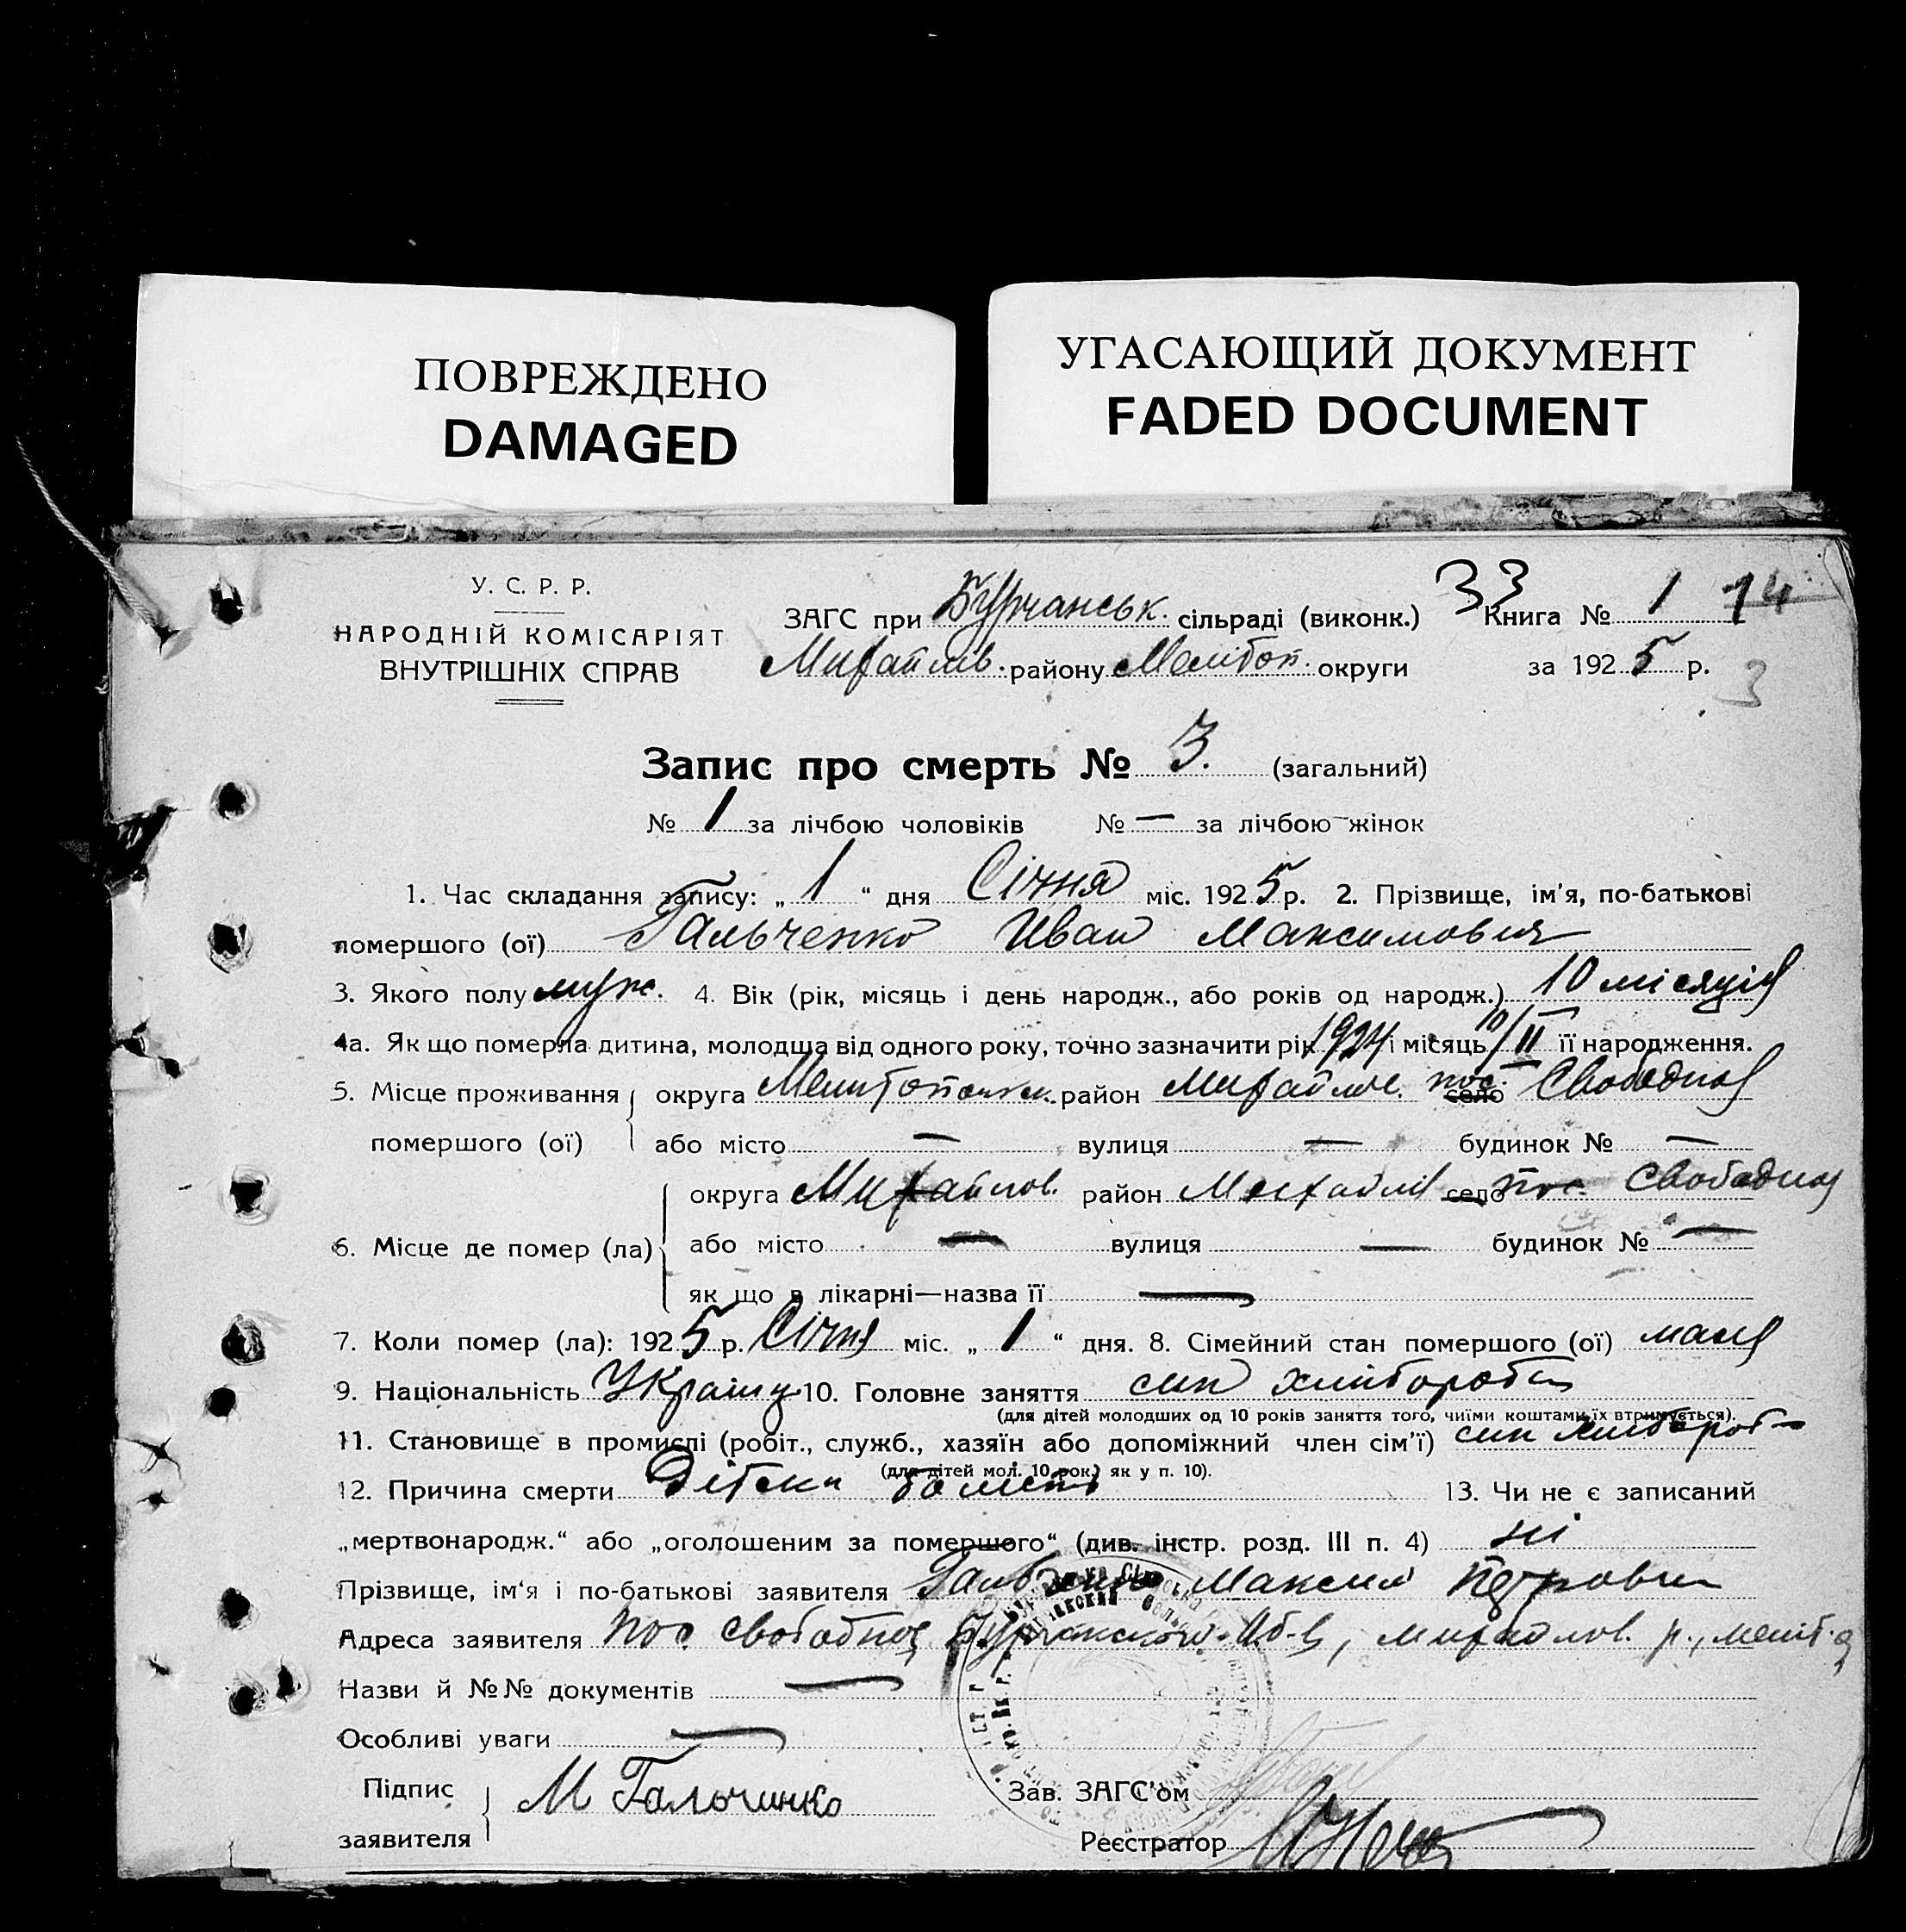 ПОВРЕЖДЕНО
DAMAGED
УГАСАЮЩИЙ ДОКУМЕНТ
FADED DOCUMENT
У. С. Р. Р.
НАРОДНІЙ КОМІСАРІЯТ
ВНУТРІШНІХ СПРАВ
ЗАГС при Бурчанськ. сільраді (виконк.)
Михайлів. району Мелітоп. округи
33 Книга № 1 14
за 1925 р. 3
Запис про смерть № 3. (загальний)
№ 1 за лічбою чоловіків № — за лічбою жінок
1. Час складання запису: „ 1 “ дня Січня міс. 1925 р. 2. Прізвище, ім'я, по-батькові
помершого (ої) Гальченко Иван Максимович
3. Якого полу муж. 4. Вік (рік, місяць і день народж., або років од народж.) 10 місяців
4а. Як що померла дитина, молодша від одного року, точно зазначити рік 1924 і місяць 10/II її народження.
5. Місце проживання помершого (ої) округа район село пос. Свободной
або місто — вулиця — будинок № —
6. Місце де помер (ла) округа Михайлов. район Михайлів село пос. Свободной
або місто — вулиця — будинок № —
як що в лікарні—назва її —
7. Коли помер (ла): 1925 р. Січня міс. „ 1 “ дня. 8. Сімейний стан помершого (ої)
9. Національність 10. Головне заняття син хлібороба
(для дітей молодших од 10 років заняття того, чиїми коштами їх втримується).
11. Становище в промислі (робіт., служб., хазяїн або допоміжний член сім'ї) син
(для дітей мол. 10 рок.) як у п. 10).
12. Причина смерти 13. Чи не є записаний
„мертвонародж.“ або „оголошеним за помершого“ (див. інстр. розд. III п. 4) ні
Прізвище, ім'я і по-батькові заявителя Максим Петрович
Адреса заявителя пос. Свободной
Назви й №№ документів —
Особливі уваги —
Підпис заявителя М Гальчинко
Зав. ЗАГС'ом
Реєстратор